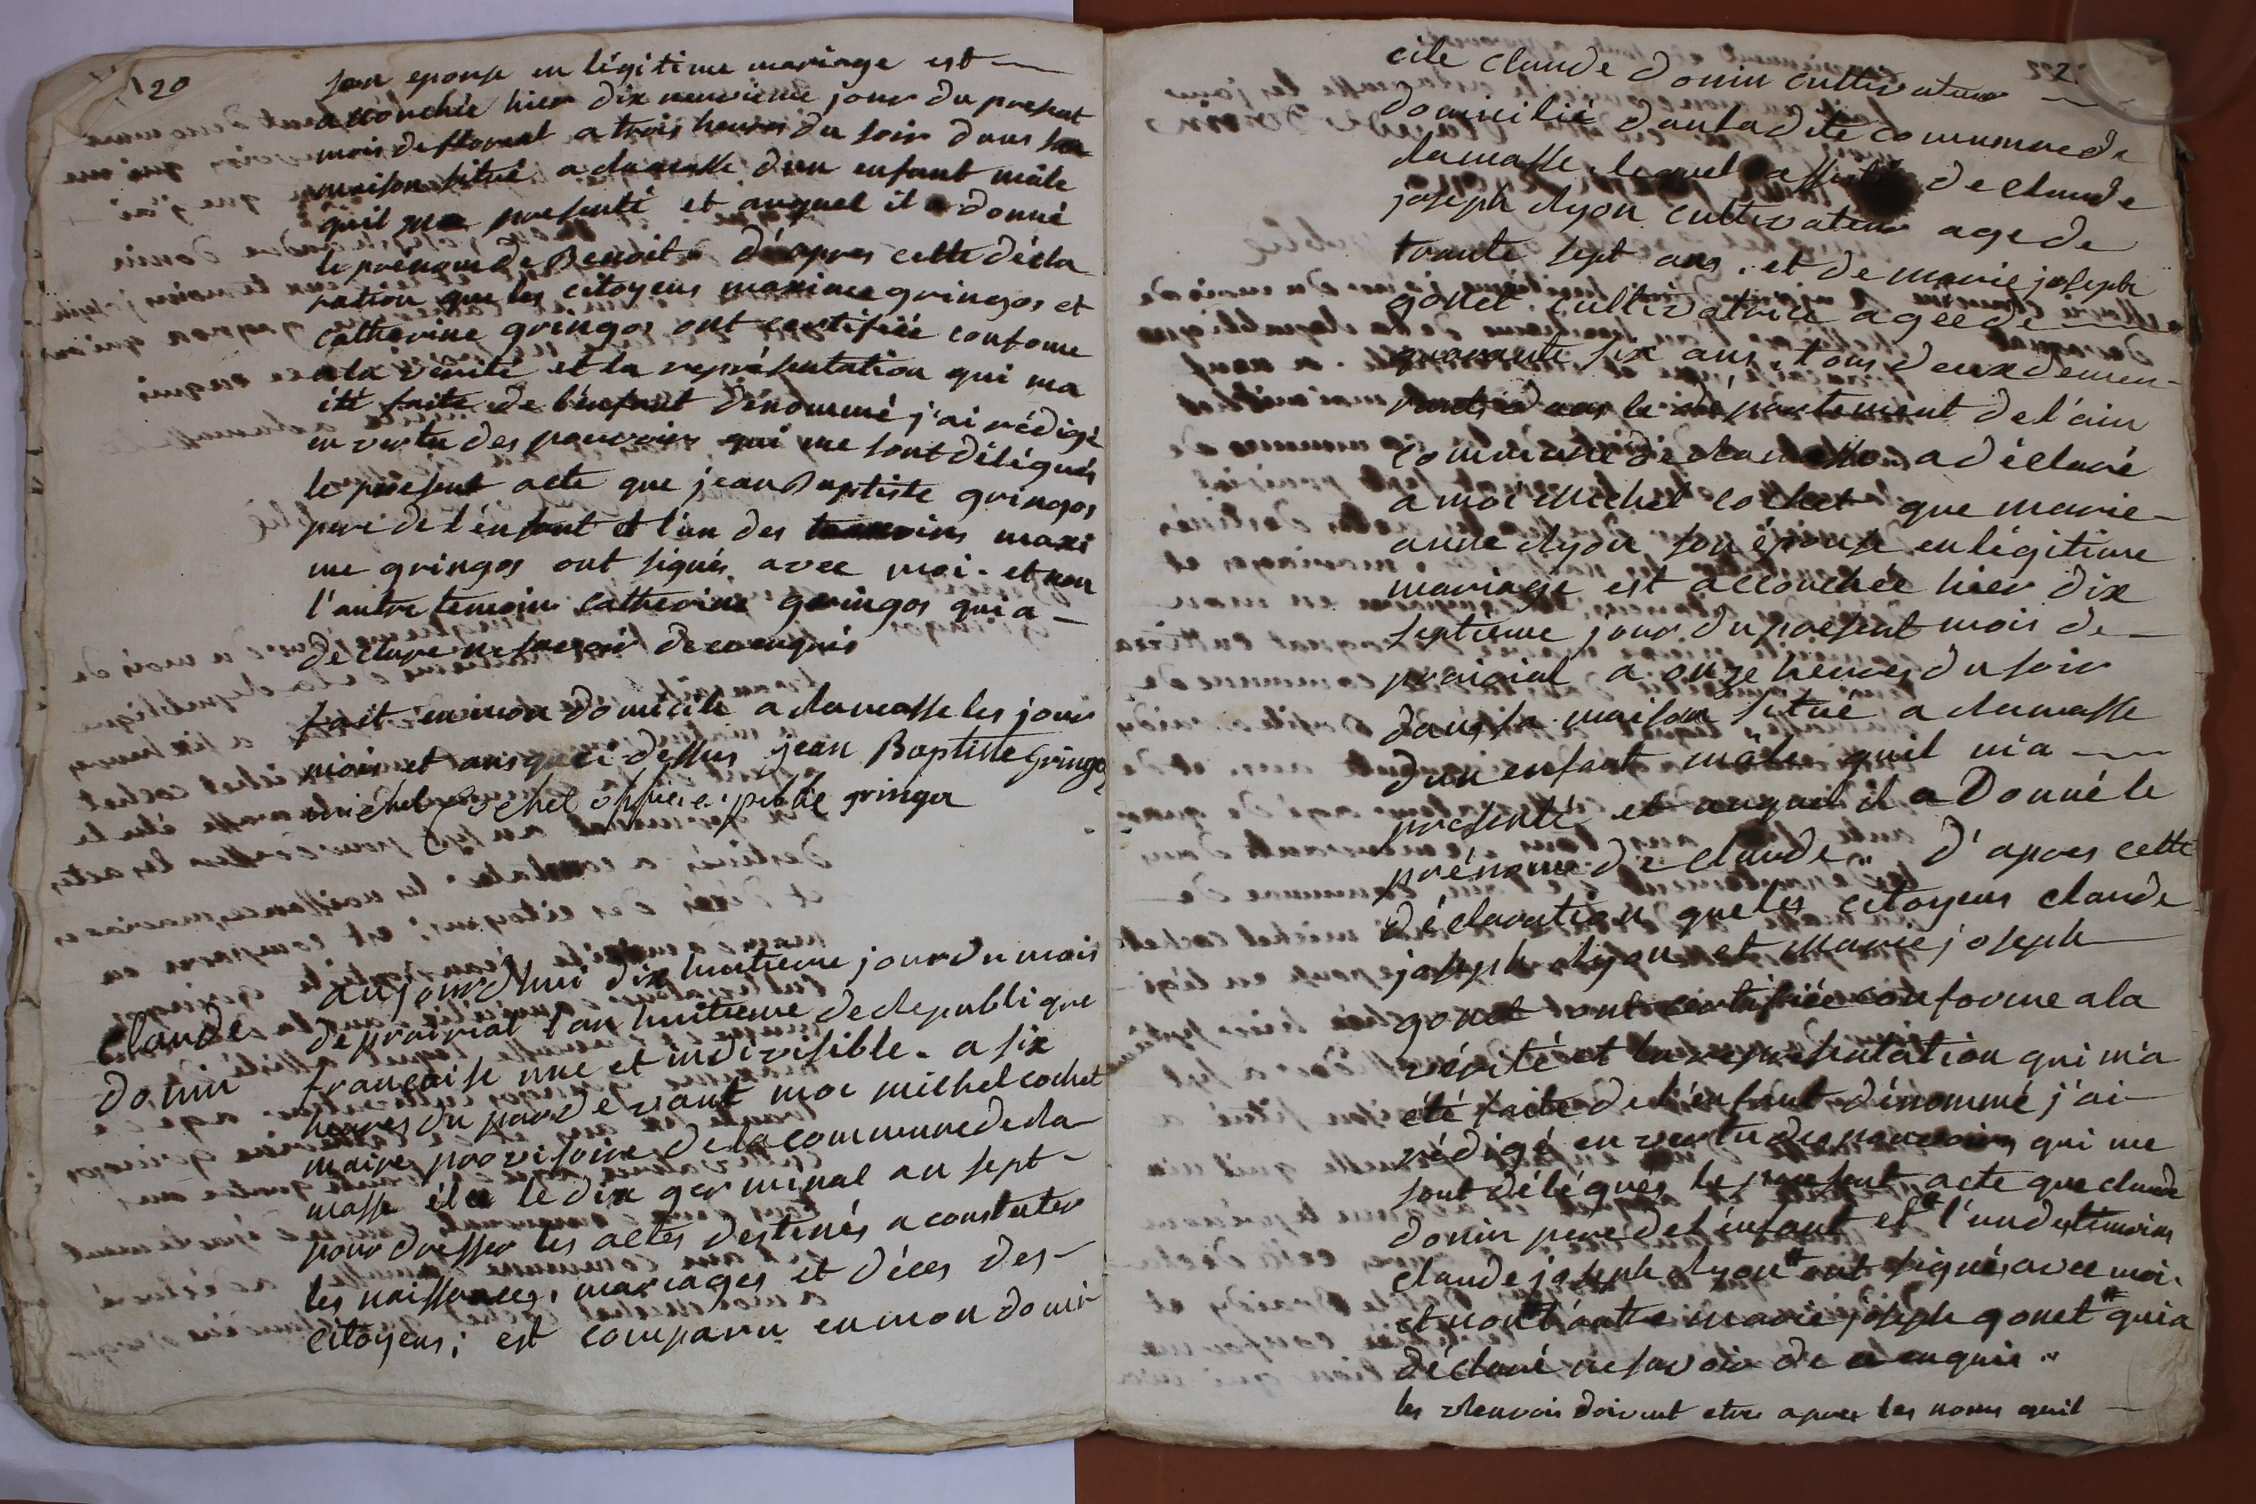 20
son epouse en légitime mariage est
accouchée hier dix neuvieme jour du present
mois de floreal a trois heures du soir dans sa
maison situé a dramasse d'un enfant mâle
quil ma presenté et auquel il a donné
le prénom de Benoit. d'apres cette décla
ration que les citoyens maxime gringos et
catherine gringos ont certifiée confome
a la vérité et la représentation qui ma
été faite de l'enfant dénommé j'ai rédigé
en vertu des pouvoirs qui me sont délégués
le present acte que jean Baptiste gringos
pere de l'enfant et l'un des temoins maxi
me gringos ont signés avec moi. et non
l'autre temoin catherine gringos qui a
declare ne savoir de ce enquis
fait en mon domicile a dramasse les jour
mois et ans que ci dessus jean Baptiste gringos
michel Cochet officier public gringos
Claude
donin
aujourdhui dix huitieme jour du mois
de prairial l'an huitieme de la republique
française une et indivisible. a six
heures du par devant moi michel cochet
maire provisoire de la commune de dra
masse élu le dix germinal an sept
pour dresser les actes destinés a constater
les naissances, mariages et déces des
citoyens; est comparu en mon domi
2
cile claude donin cultivateur
domicilié dans ladite commune de
dramasse lequel assisté de claude
joseph dyon cultivateur age de
trante sept ans. et de marie joseph
gonet cultivatrice agée de
quarante six ans, tous deux demeu
rants dans le département de l'ain
commune de dramasse a déclaré
a moi michel cochet que marie
anne dyon son épouse en légitime
mariage est accouchée hier dix
septieme jour du present mois de
prairial a onze heures du soir
dans sa maison situé a dramasse
d'un enfant mâle quil m'a
presenté et auquel il a Donné le
prénom de claude. d'apres cette
déclaration que les citoyens claude
joseph dyon et marie joseph
gonet ont certifiée conforme a la
vérité et la représentation qui m'a
été faite de l'enfant dénommé j'ai
rédigé en vertu des pouvoirs qui me
sont délégués le present acte que claude
donin pere de l'enfant et l'un des temoins
claude joseph dyon ont signés avec moi.
et non l'autre marie joseph gonet qui a
déclaré ne savoir de ce enquis.
les renvois doivent etre apres les noms quil